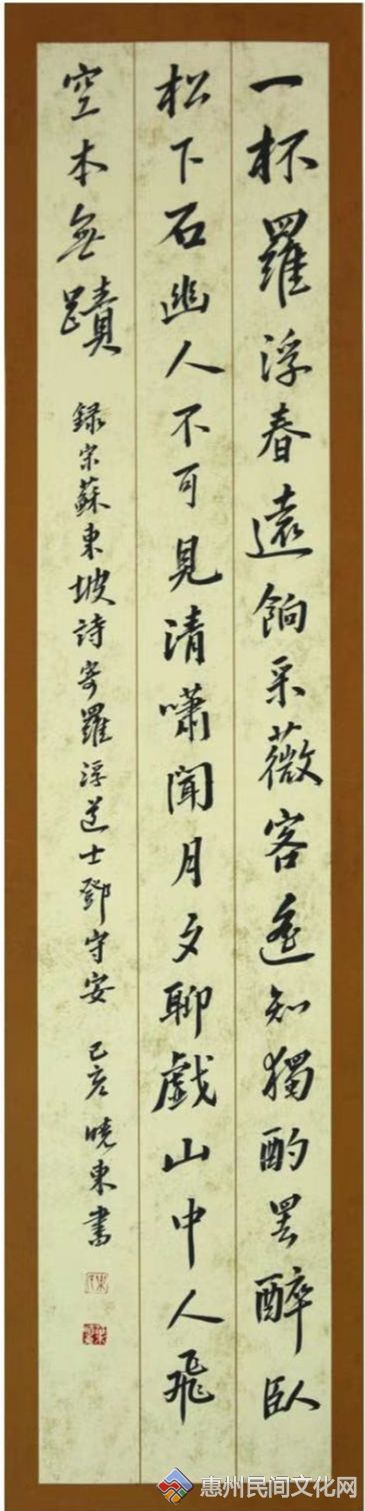 一杯羅浮春遠餉采薇客遙知獨酌罢醉臥
松下石幽人不可見清嘯聞月夕聊戯山中人飛
空本無蹟 録宋蘇東坡詩寄羅浮道士鄧守安 己亥曉東書
惠州民间文化网